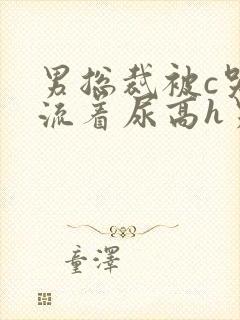 男总裁被c哭
流着尿高h
童澤